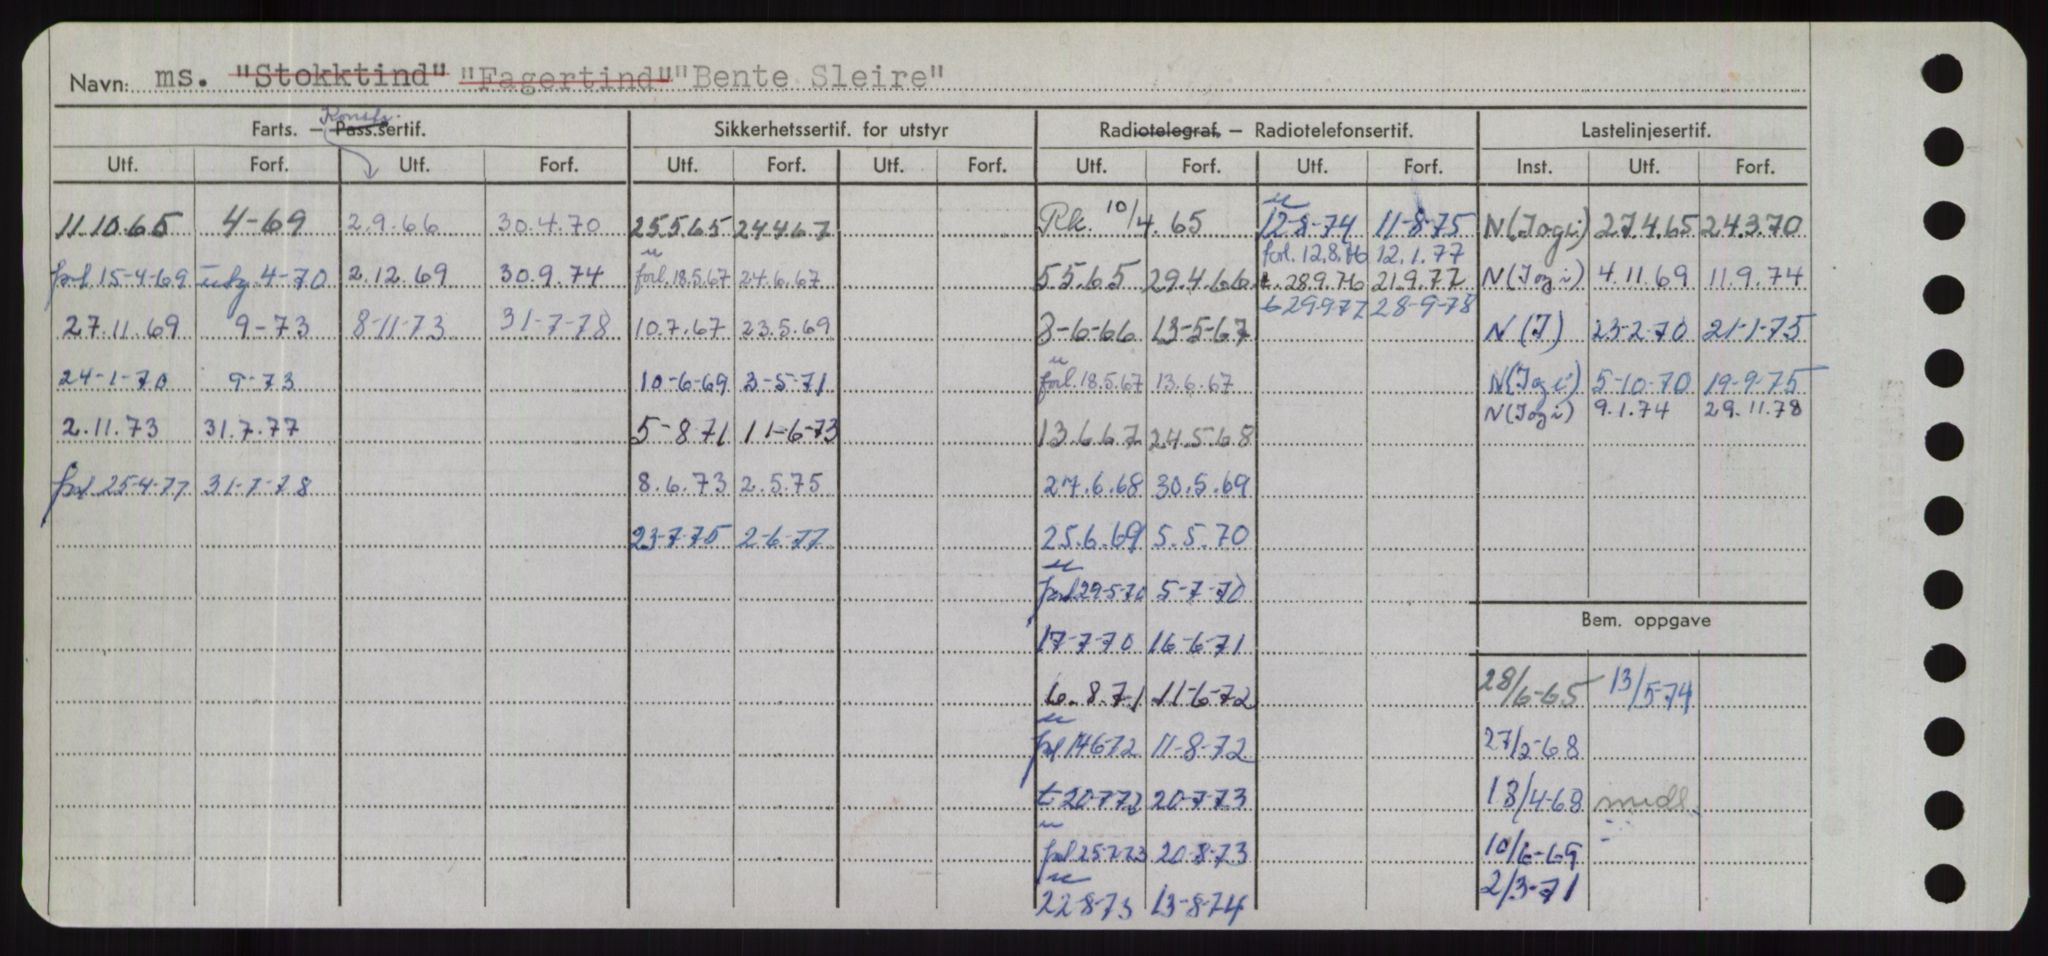 Navn: ms. "Stokktind" "Fagertind" "Bente Sleire"
Konstr.
Farts. — Pass.sertif. Sikkerhetssertif. for utstyr Radiotelegraf. — Radiotelefonsertif. Lastelinjesertif.
Utf. Forf. Utf. Forf. Utf. Forf. Utf. Forf. Utf. Forf. Utf. Forf. Inst. Utf. Forf.
11.10.65 4-69 2.9.66 30.4.70 25.5.65 24.4.67 Rk. 10/4.65 12-8-74 11-8-75 N(Jogi) 27.4.65 24.3.70
forl. 12.8.76 12.1.77
forl 15-4-69 utg 4-70 2.12.69 30.9.74 forl. 18.5.67 24.6.67 5.5.65 29.4.66 t. 28.9.76 21.9.77 N(Jogi) 4.11.69 11.9.74
t 29-9-77 28-9-78
27.11.69 9-73 8-11-73 31-7-78 10.7.67 23.5.69 3-6-66 13-5-67 N(J) 23-2-70 21-1-75
24-1-70 9-73 10-6-69 3-5-71 forl. 18.5.67 13.6.67 N(Jogi) 5-10-70 19-9-75
N(Jogi) 9.1.74 29.11.78
2.11.73 31.7.77 5-8-71 11-6-73 13.6.67 24.5.68
forl 25-4-77 31-7-78 8.6.73 2.5.75 27.6.68 30.5.69
23-7-75 2-6-77 25.6.69 5.5.70
forl 29-5-70 5-7-70
Bem. oppgave
17-7-70 16-6-71
6.8.71 11-6-72 28/6-65 13/5-74
forl 14-6-72 11-8-72 27/2-68
t 20-7-72 20-7-73 18/4-68 midl.
forl 25-7-73 20-8-73 10/6-69
22-8-73 13-8-74 2/3-71